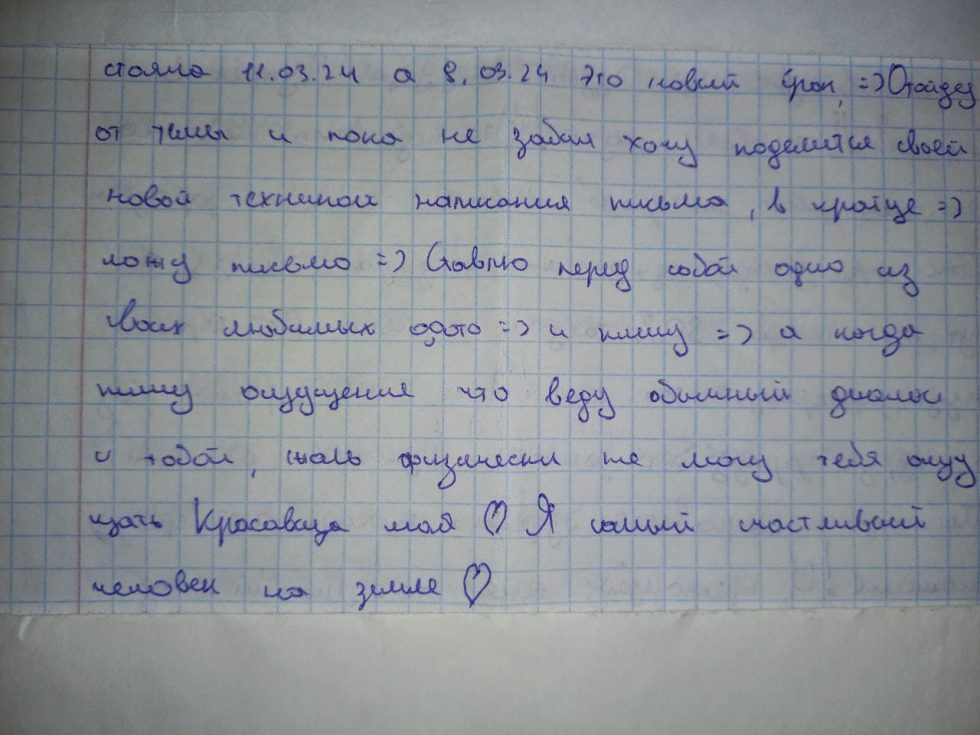 стояла 11.03.24 а 8.03.24 это новый =) Отойду
от темы и пока не забыл хочу поделится своей
новой техникой написания письма, в кратце =)
ложу письмо =) Ставлю перед собой одно из
своих любимых фото =) и пишу =) а когда
пишу ощущения что веду обычный диалог
с тобой, жаль физически не могу тебя ощу
щать Красавица моя ♡ Я самый счастливый
человек на земле ♡